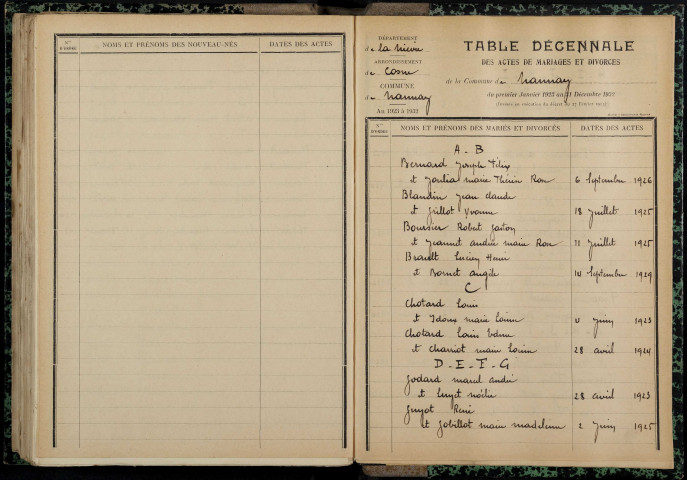 Nos D'ORDRE NOMS ET PRÉNOMS DES NOUVEAU-NÉS DATES DES ACTES
DÉPARTEMENT
de la Nièvre
ARRONDISSEMENT
de Cosne
COMMUNE
de Nannay
An 1923 à 1932
TABLE DÉCENNALE
DES ACTES DE MARIAGES ET DIVORCES
de la Commune de Nannay
du premier Janvier 1923 au 31 Décembre 1932
Nos D'ORDRE NOMS ET PRÉNOMS DES MARIÉS ET DIVORCÉS DATES DES ACTES
A - B
Bernard Joseph Félix
et Joulia marie Thérèse Rose 6 Septembre 1926
Blandin Jean Claude
et Gillot Yvonne 18 Juillet 1925
Boursier Robert Gaston
et Jeannet andrée marie Rose 11 Juillet 1925
Brault Lucien Henri
et Bornet angèle 14 Septembre 1929
C
Chotard Louis
et Idoux marie Louise 4 Juin 1923
Chotard Louis
et Charriot marie Louise 28 avril 1924
D - E - F - G
Godard marcel andré
et 28 avril 1923
Guyot René
et Gobillot marie madeleine 2 Juin 1925